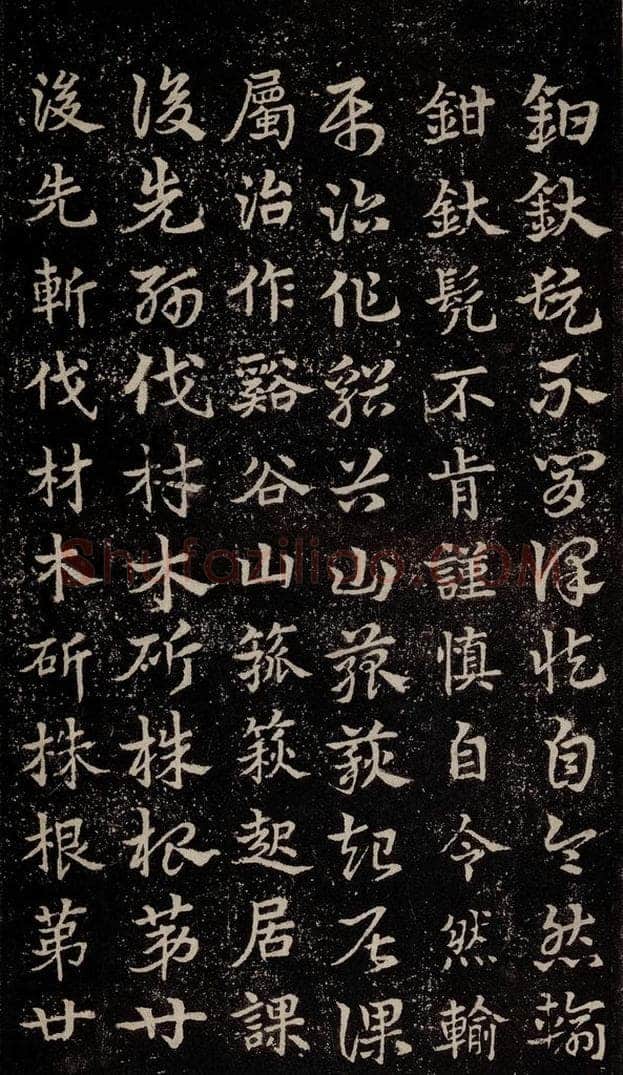 鉗釱髡不肯謹慎自令然輸
鉗釱髡不肯謹慎自令然輸
屬治作谿谷山箛篍起居課
屬治作谿谷山箛篍起居課
後先斬伐材木斫株根苐廿
後先斬伐材木斫株根苐廿
Shufaziliao.COM